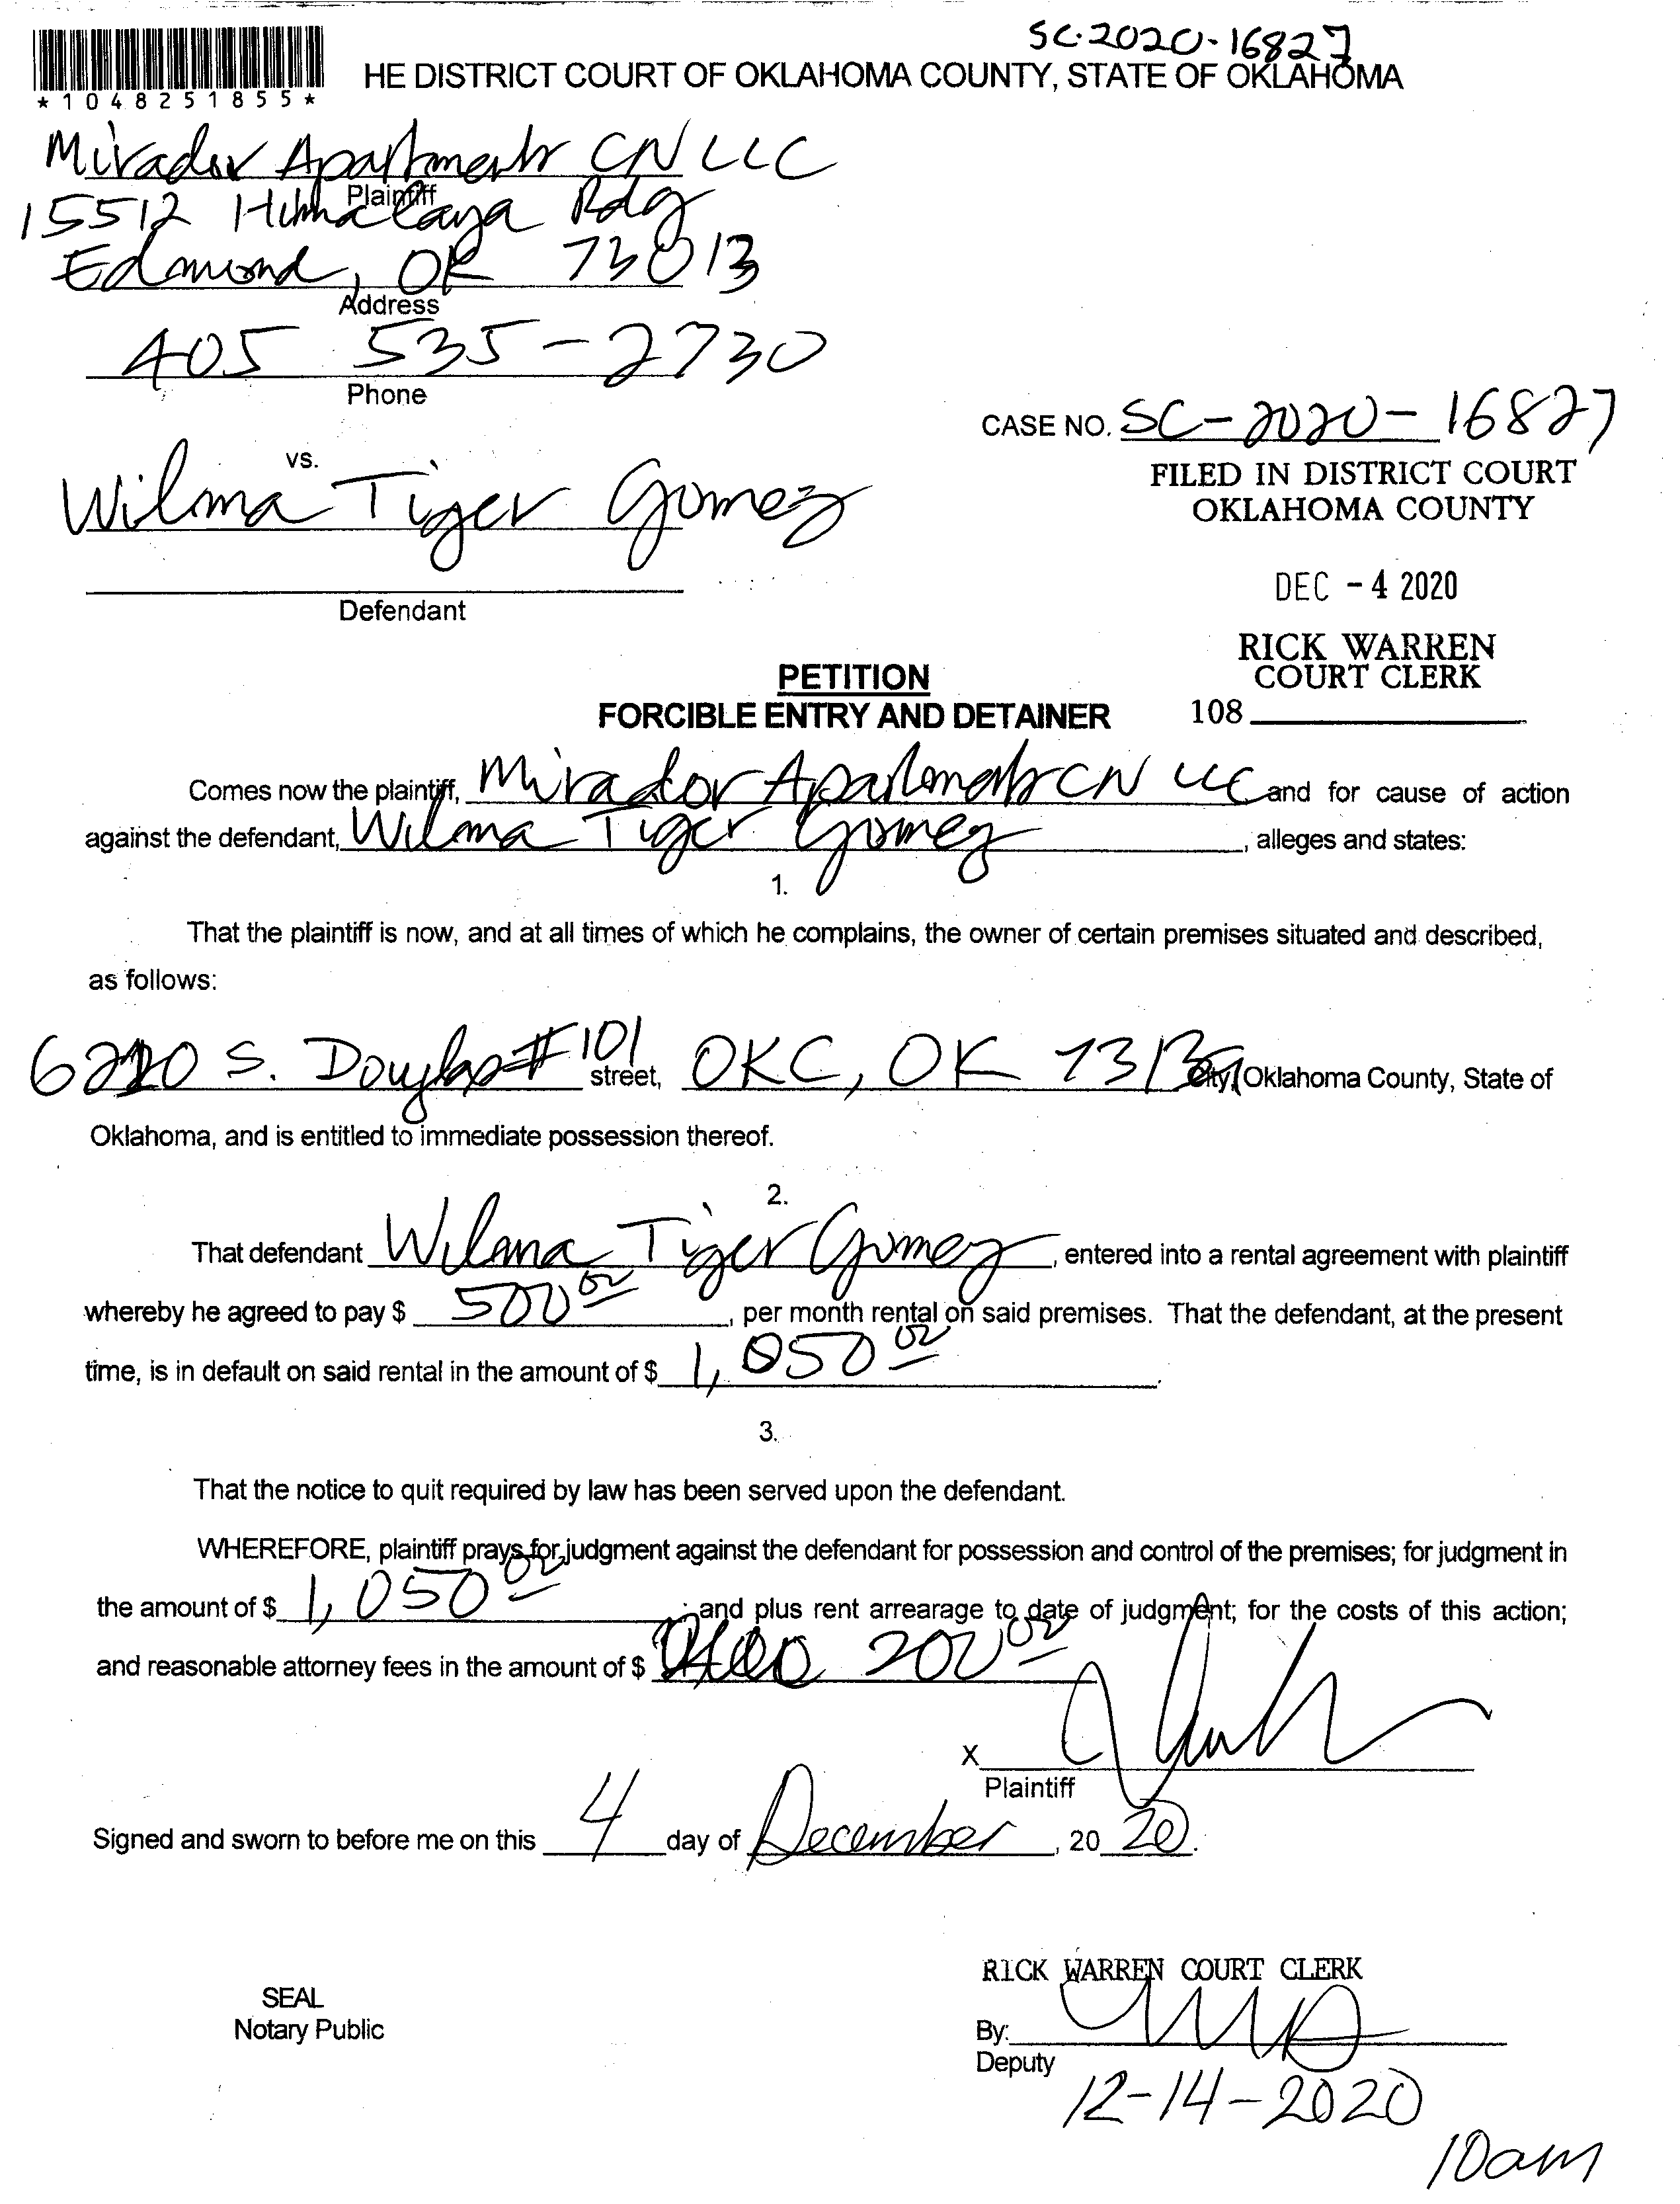 SC-2020-16827
*1048251855*
HE DISTRICT COURT OF OKLAHOMA COUNTY, STATE OF OKLAHOMA
Mirador Apartments CN LLC
Plaintiff
15512 Himalaya Rdg
Edmond, OK 73013
Address
405 535-2730
Phone
CASE NO. SC-2020-16827
vs.
FILED IN DISTRICT COURT
OKLAHOMA COUNTY
Wilma Tiger Gomez
DEC -4 2020
Defendant
RICK WARREN
COURT CLERK
PETITION
108
FORCIBLE ENTRY AND DETAINER
Comes now the plaintiff, Mirador Apartments CN LLC and for cause of action
against the defendant, Wilma Tiger Gomez, alleges and states:
1.
That the plaintiff is now, and at all times of which he complains, the owner of certain premises situated and described,
as follows:
S. Douglas #101 street, OKC, OK city, Oklahoma County, State of
Oklahoma, and is entitled to immediate possession thereof.
2.
That defendant Wilma Tiger Gomez, entered into a rental agreement with plaintiff
whereby he agreed to pay $ 500 00, per month rental on said premises. That the defendant, at the present
time, is in default on said rental in the amount of $ 1,050 00.
3.
That the notice to quit required by law has been served upon the defendant.
WHEREFORE, plaintiff prays for judgment against the defendant for possession and control of the premises; for judgment in
the amount of $ 1,050 00 and plus rent arrearage to date of judgment; for the costs of this action;
and reasonable attorney fees in the amount of $ 200 00
X
Plaintiff
Signed and sworn to before me on this 4 day of December, 20 20.
RICK WARREN COURT CLERK
SEAL
Notary Public
By:
Deputy
12-14-2020
10am